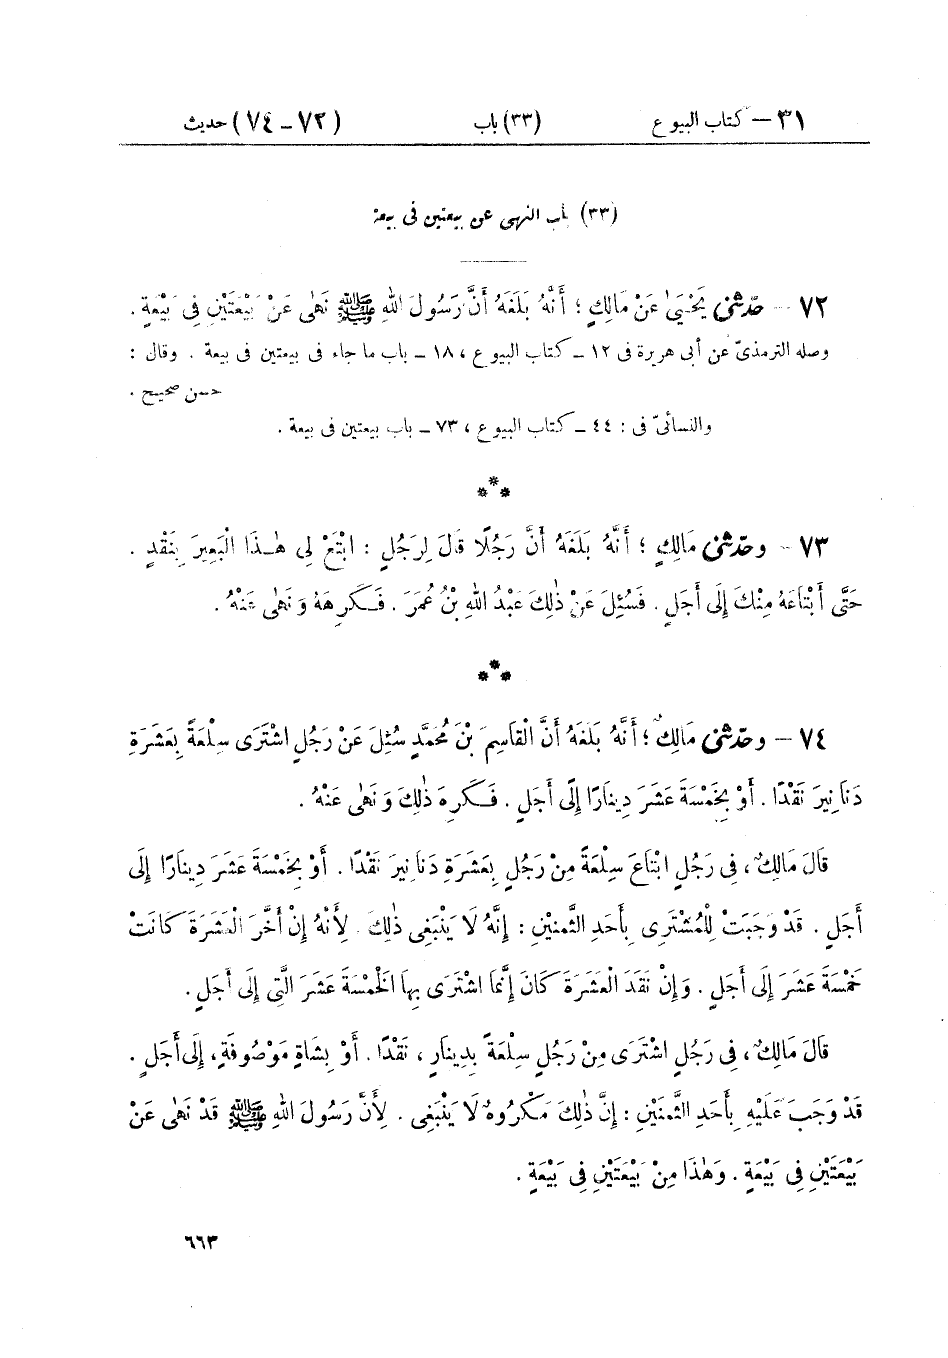 ٣١ – كتاب البيوع (٣٣) باب (٧٢ – ٧٤) حديث
(٣٣) باب النهى عن بيعتين فى بيعة
٧٢ – حدّثنى يَحْيَىٰ عَنْ مَالِكٍ ؛ أَنَّهُ بَلَغَهُ أَنَّ رَسُولَ اللهِ ﷺ نَهَىٰ عَنْ بَيْعَتَيْنِ فِى بَيْعَةٍ .
وصله الترمذىّ عن أبى هريرة فى ١٢ – كتاب البيوع ، ١٨ – باب ما جاء فى بيعتين فى بيعة . وقال :
حسن صحيح .
والنسائىّ فى : ٤٤ – كتاب البيوع ، ٧٣ – باب بيعتين فى بيعة .
***
٧٣ – وحدّثنى مَالِكٍ ؛ أَنَّهُ بَلَغَهُ أَنَّ رَجُلًا قَالَ لِرَجُلٍ : ابْتَعْ لِى هٰذَا الْبَعِيرَ بِنَقْدٍ .
حَتَّى أَبْتَاعَهُ مِنْكَ إِلَى أَجَلٍ . فَسُئِلَ عَنْ ذٰلِكَ عَبْدُ اللهِ بْنُ عُمَرَ . فَكَرِهَهُ وَنَهَىٰ عَنْهُ .
***
٧٤ – وحدّثنى مَالِكٌ ؛ أَنَّهُ بَلَغَهُ أَنَّ الْقَاسِمَ بْنَ مُحَمَّدٍ سُئِلَ عَنْ رَجُلٍ اشْتَرَى سِلْعَةً بِعَشَرَةِ
دَنَانِيرَ نَقْدًا . أَوْ بِخَمْسَةَ عَشَرَ دِينَارًا إِلَى أَجَلٍ . فَكَرِهَ ذٰلِكَ وَنَهَىٰ عَنْهُ .
قَالَ مَالِكٌ ، فِى رَجُلٍ ابْتَاعَ سِلْعَةً مِنْ رَجُلٍ بِعَشَرَةِ دَنَانِيرَ نَقْدًا . أَوْ بِخَمْسَةَ عَشَرَ دِينَارًا إِلَى
أَجَلٍ . قَدْ وَجَبَتْ لِلْمُشْتَرِى بِأَحَدِ الثَّمَنَيْنِ : إِنَّهُ لَا يَنْبَغِى ذٰلِكَ . لِأَنَّهُ إِنْ أَخَّرَ الْعَشَرَةَ كَانَتْ
خَمْسَةَ عَشَرَ إِلَى أَجَلٍ . وَإِنْ نَقَدَ الْعَشَرَةَ كَانَ إِنَّمَا اشْتَرَى بِهَا الْخَمْسَةَ عَشَرَ الَّتِى إِلَى أَجَلٍ .
قَالَ مَالِكٌ ، فِى رَجُلٍ اشْتَرَى مِنْ رَجُلٍ سِلْعَةً بِدِينَارٍ ، نَقْدًا . أَوْ بِشَاةٍ مَوْصُوفَةٍ ، إِلَى أَجَلٍ .
قَدْ وَجَبَ عَلَيْهِ بِأَحَدِ الثَّمَنَيْنِ : إِنَّ ذٰلِكَ مَكْرُوهٌ لَا يَنْبَغِى . لِأَنَّ رَسُولَ اللهِ ﷺ قَدْ نَهَىٰ عَنْ
بَيْعَتَيْنِ فِى بَيْعَةٍ . وَهٰذَا مِنْ بَيْعَتَيْنِ فِى بَيْعَةٍ .
٦٦٣